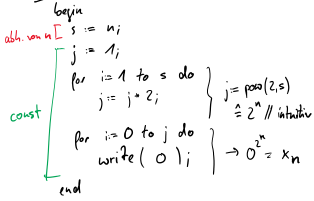 begin
abh. von n [ s := n;
j := 1;
for i := 1 to s do
j := j * 2;
j = pow(2,s)
≙ 2^n // intuitiv
const
for i := 0 to j do
write ( 0 ) ;
→ 0^2^n = x_n
end